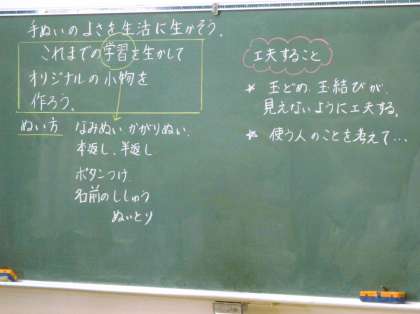 手ぬいのよさを生活に生かそう.
これまでの学習を生かして
オリジナルの小物を
作ろう.
ぬい方 なみぬい かがりぬい.
本返し、半返し
ボタンつけ
名前のししゅう
ぬいとり
工夫すること
★ 玉どめ、玉結びが、
見えないように工夫する.
★ 使う人のことを考えて…